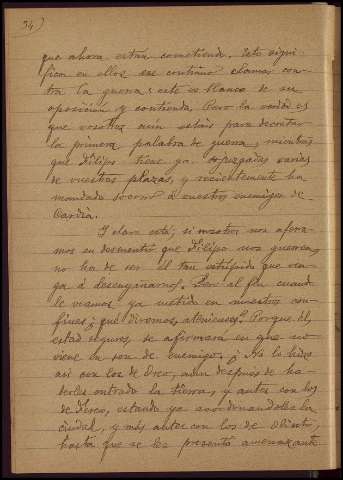 34)
que ahora están cometiendo. Esto signi-
fica en ellos ese continuo clamar con-
tra la guerra: este es blanco de su
oposición y contienda. Pero la verdad es
que vosotros aún estáis para decretar
la primera palabra de guerra, mientras
que Filipo tiene ya sojuzgadas varias
de vuestras plazas, y recientemente ha
mandado socorro á vuestros enemigos de
Cardia.
Y claro está, si nosotros nos afera-
mos en desmentir que Filipo nos guerrea,
no ha de ser él tan estúpido que ven-
ga á desengañarnos. Pero al fin cuando
le veamos ya metido en nuestros con-
fines ¿qué diremos, atenienses? Porque él,
estad seguros, se afirmará en que no
viene en son de enemigo. ¿No lo hizo
así con los de Oreo, aún después de ha-
berles entrado la tierra, y antes con los
de Feres, estando ya
ciudad, y más antes con los de Olinto,
hasta que se les presentó amenazante